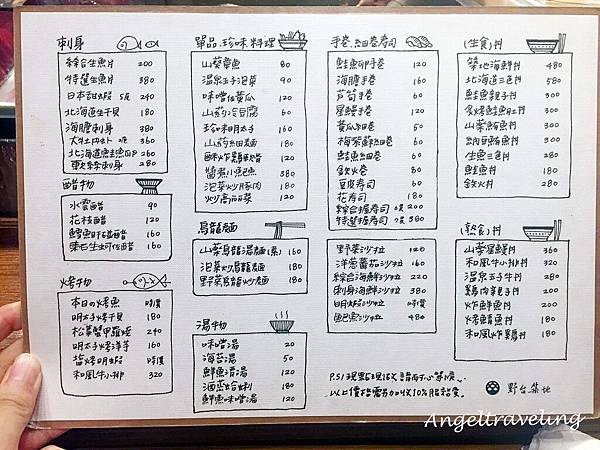 刺身
綜合生魚片 200
特選生魚片 380
日本甜蝦 5尾 240
北海道生干貝 180
海膽刺身 380
北海道鮭魚卵 260
軟絲刺身 280
醋物
水雲醋 90
花枝醋 120
160
160
烤物
本日の烤魚 時價
明太子烤干貝 180
松葉蟹甲羅燒 240
明太子烤洋芋 160
鹽烤明蝦 時價
和風牛小排 320
單品.珍味料理
山葵章魚 80
溫泉玉子泡菜 90
味噌佐黃瓜 120
山藥冷豆腐 60
珍味明太子 160
山藥細麵 180
160
180
泡菜炒豚肉 180
炒高麗菜 120
烏龍麵
山藥烏龍湯麵(素) 160
泡菜炒烏龍麵 180
野菜烏龍炒麵 180
湯物
味噌湯 20
海苔湯 50
鮮魚清湯 120
酒蒸蛤蜊 180
鮮魚味噌湯 120
手卷.細卷壽司
鮭魚卵手卷 120
海膽手卷 160
蘆筍手卷 60
星鰻手卷 120
黃瓜細卷 50
梅紫蘇細卷 60
鮭魚細卷 60
鐵火卷 80
豆皮壽司 60
花壽司 180
綜合握壽司 200
特選握壽司 380
野菜沙拉 120
洋蔥蕃茄沙拉 160
綜合海鮮沙拉 220
刺身海鮮沙拉 380
明蝦沙拉 時價
鮑魚沙拉 480
(生食)丼
築地海鮮丼 480
北海道三色丼 580
鮭魚親子丼 300
炙烤鮭魚肚丼 300
山葵鮪魚丼 280
納豆鮪魚丼 280
生魚三色丼 280
鮭魚丼 180
鐵火丼 280
(熟食)丼
山葵星鰻丼 360
和風牛小排丼 360
溫泉玉子牛丼 280
雞肉親子丼 180
炸鮮魚丼 200
烤鯖魚丼 180
和風炸雞丼 180
P.S!現點現做 請耐心等候
以上價格需另加收10%服務費
野台築地
Angeltraveling